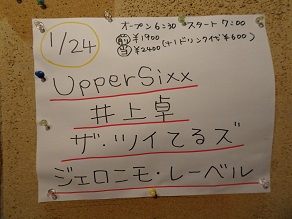 1/24
オープン6:30 スタート7:00
前 ¥1900
当 ¥2400 (+1ドリンク代¥600)
UpperSixx
井上卓
ザ・ツイてるズ
ジェロニモ・レーベル